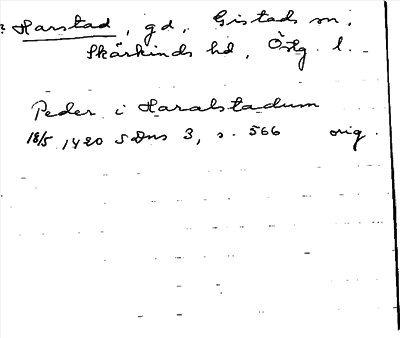 ? Harstad, gd, Gistads sn,
Skärkinds hd, Östg. l.
Peder i Haralstadum
18/5 1420 SDns 3, s. 566 orig.